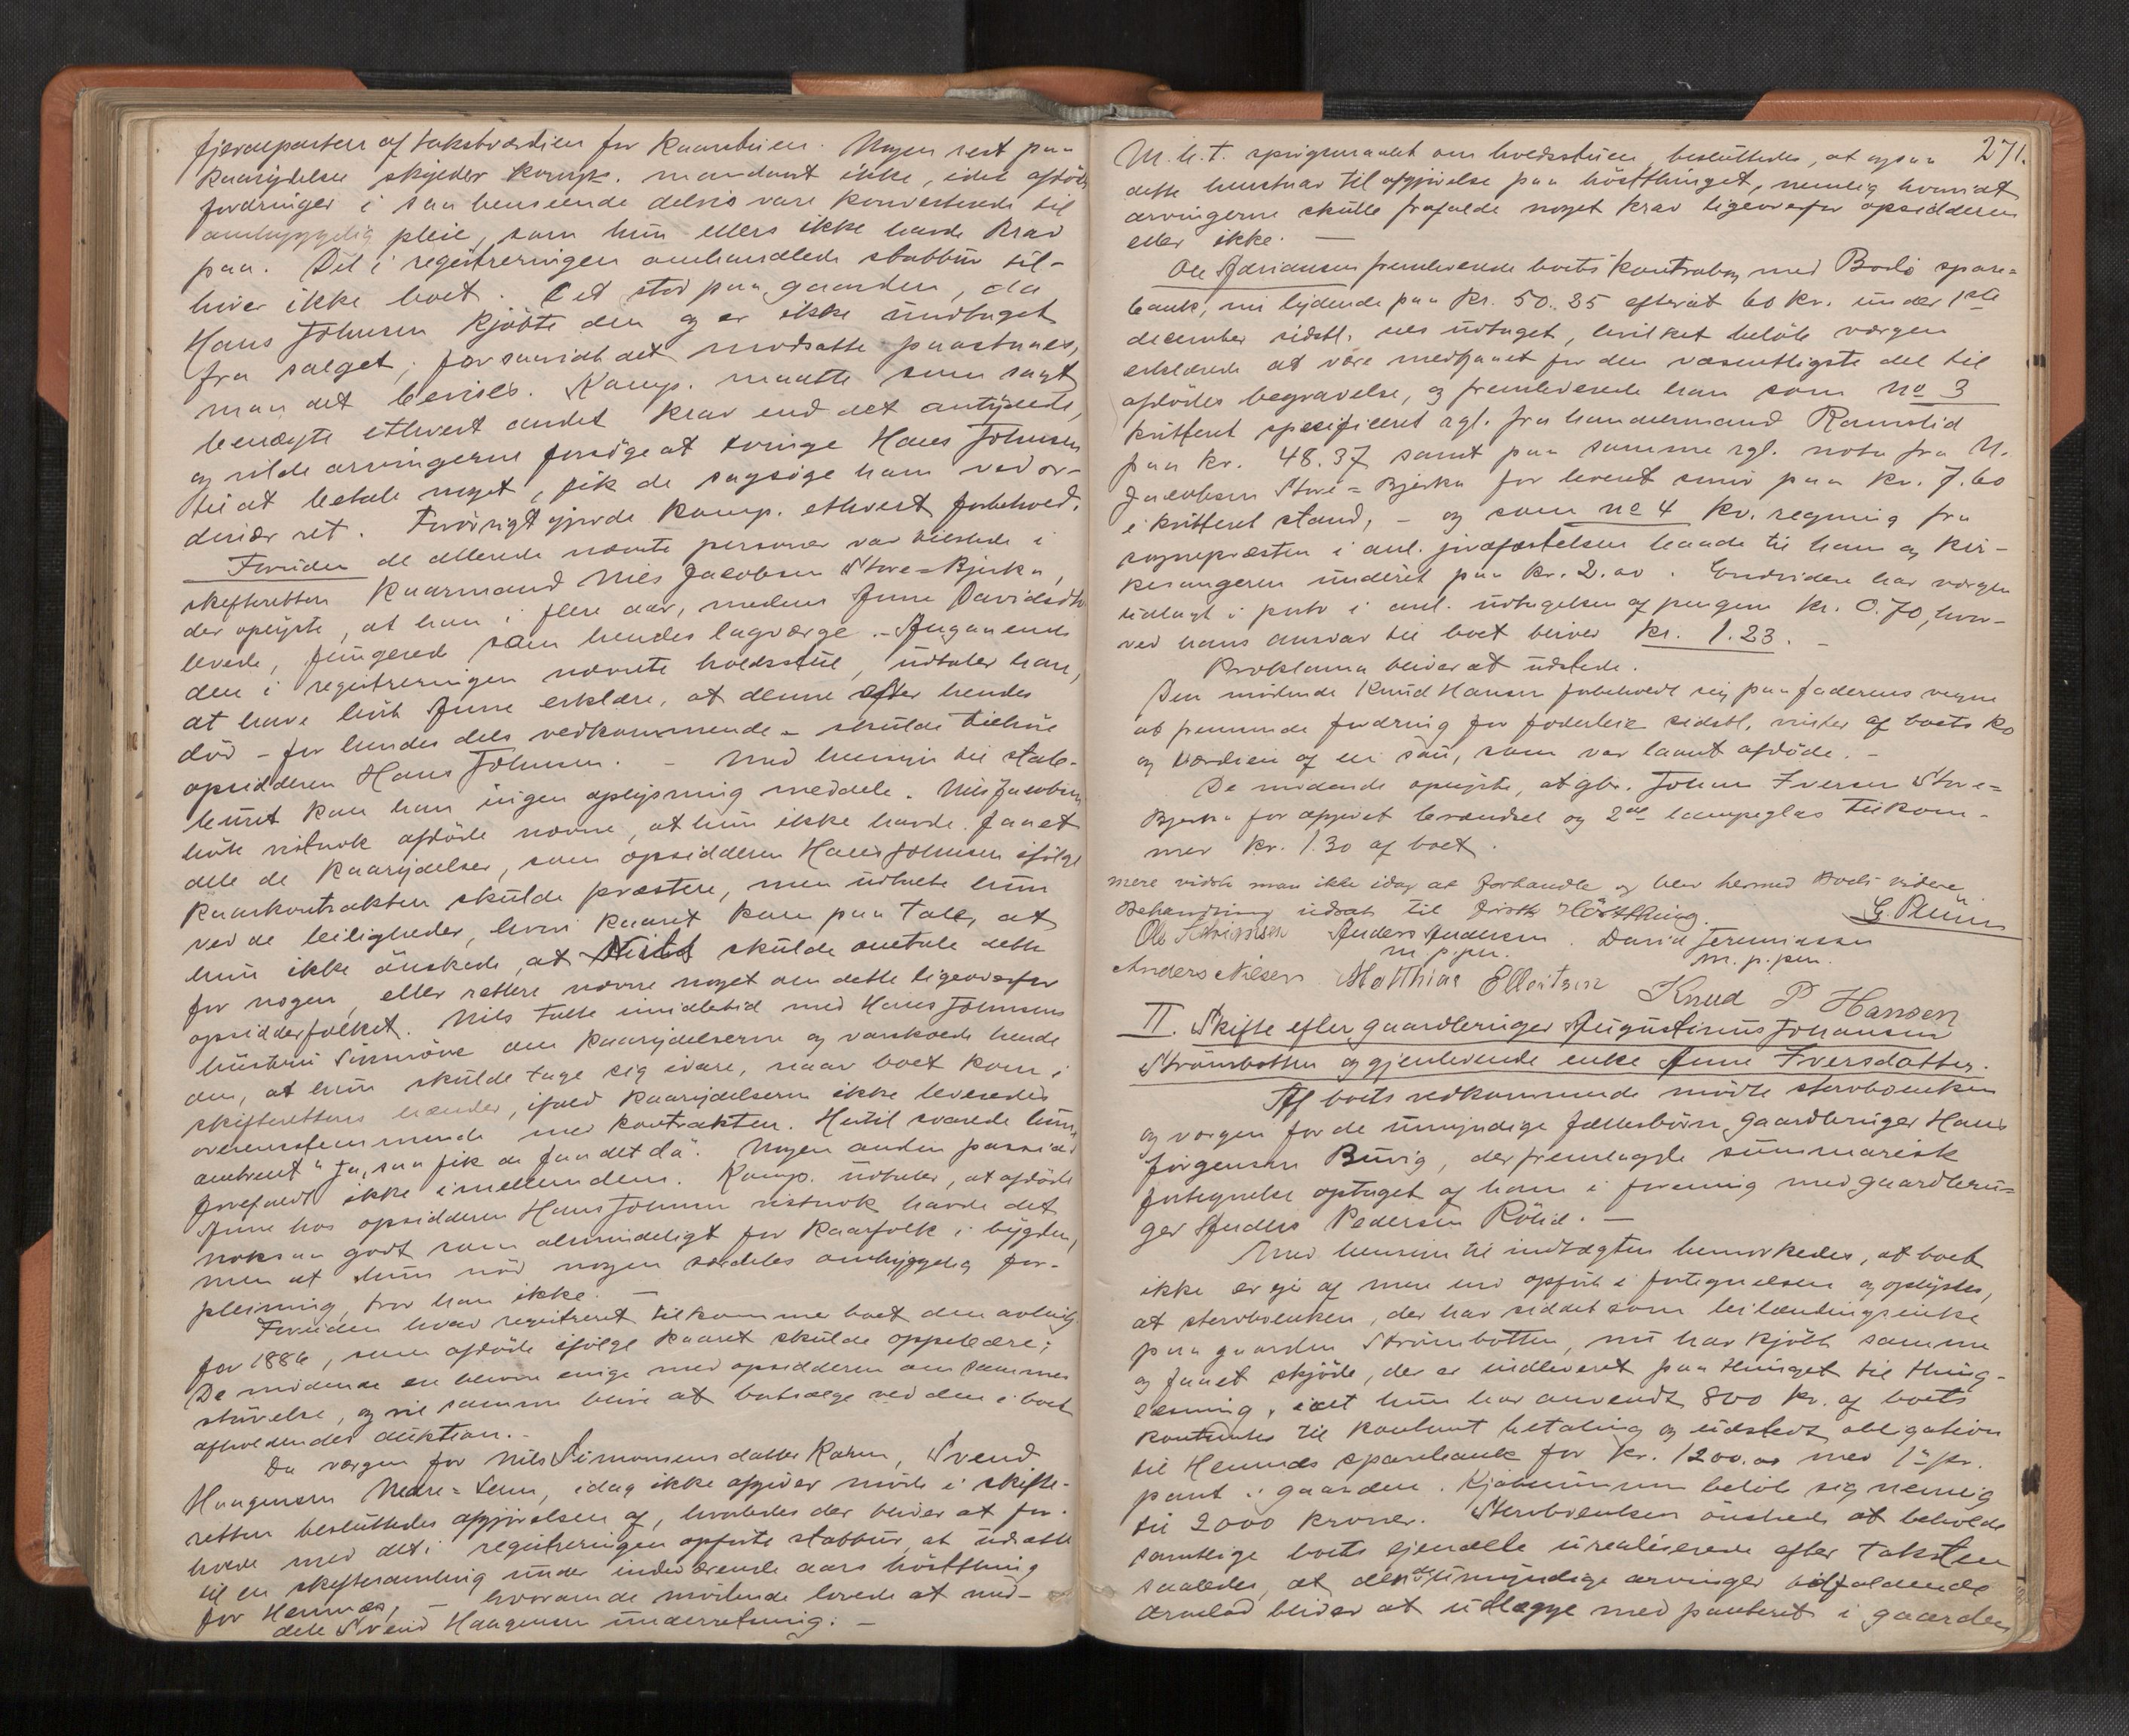 fjerdeparten af takstværdien for kaarstuen. Nogen rest paa
kaarydelser skylder komp. mandant ikke, idet afdødes
fordringer i saa henseende delvis vare konverterede til
omhyggelig pleie, som hun ellers ikke havde krav
paa. Det i registreringen omhandlede stabbur til-
hører ikke boet. Det stod paa gaarden, da
Hans Johnsen kjøbte den og er ikke undtaget
fra salget; forsaavidt det modsatte paastaaes,
maa det bevises. Komp. maatte som sagt
benægte ethvert andet krav end det antydede,
og vilde arvingerne forsøge at tvinge Hans Johnsen
til at betale noget, fik de sagsøge ham ved or-
dinær ret. Forøvrigt gjorde komp. ethvert forbehold.
Foruden de allerede nævnte personer var tilstede i
skifteretten kaarmand Nils Jacobsen Store=Bjerka,
der oplyste, at han i flere aar, medens Anne Davidsdtr
levede, fungerede som hendes lagværge. - Angaaende
den i registreringen nævnte hvedsstue, udtaler han,
at have hørt Anne erklære, at denne efter hendes
død - for hendes dels vedkommende - skulde tilhøre
opsidderen Hans Johnsen. - Med hensyn til stab-
buret kan han ingen oplysning meddele. Nils Jacobsen
hørte vistnok afdøde nævne, at hun ikke havde faaet
alle de kaarydelser, som opsidderen Hans Johnsen ifølge
kaarkontrakten skulde præstere, men udtalte hun
ved de leiligheder, hvori kaaret kom paa tale, at
hun ikke ønskede, at Nils skulde omtale dette
for nogen, eller rettere nævne noget om dette ligeoverfor
opsidderfolket. Nils talte imidlertid med Hans Johnsens
hustru Sinnøve om kaarydelserne og varskoede hende
om, at hun skulde tage sig ivare, naar boet kom i
skifterettens hænder, ifald kaarydelserne ikke leveredes
overensstemmende med kontrakten. Hertil svarede hun
omtrent "Ja, saa fik de faa det da". Nogen anden passiar
forefaldt ikke imellem dem. Komp. udtaler, at afdøde
Anne hos opsidderen Hans Johnsen vistnok havde det
noksaa godt som almindeligt for kaarfolk i bygden,
men at hun nød nogen særdeles omhyggelig for-
pleining, tror han ikke. -
Foruden hvad registreret tilkommer boet den avling
for 1886, som afdøde ifølge kaaret skulde oppebære;
De mødende er bleven enige med opsidderen om sammes
størrelse, og vil samme blive at bortsælge ved den i boet
afholdendes auktion. -
Da værgen for Nils Simonsens datter Karen, Svend
Haagensen Nedre=Leun, idag ikke afgiver møde i skifte-
retten besluttedes afgjørelsen af, hvorledes der bliver at for-
holde med det i registreringen opførte stabbur, at udsætte
til en skiftesamling under indeværende aars høstthing
for Hemnæs, - hvorom de mødende lovede at med-
dele Svend Haagensen underretning. -
271.
M.h.t. spørgsmaalet om hvedsstuen, besluttedes, at ogsaa
dette henstaar til afgjørelse paa høstthinget, nemlig hvorvidt
arvingerne skulle frafalde noget krav ligeoverfor opsidderen
eller ikke. -
Ole Adriansen fremleverede boets kontrabog med Bodø spare=
bank, nu lydende paa kr. 50.35 efterat 60 kr. under 1ste
december sidstl. var udtaget, hvilket beløb værgen
erklærede at være medgaaet for den væsentligste del til
afdødes begravelse, og fremleverede han som no 3
kvitteret specificeret rgl. fra handelsmand Ramslid
paa kr. 48.37 samt paa samme rgl. nota fra N.
Jacobsen Store=Bjerka for leveret smør paa kr. 7.60
i kvitteret stand, - og som no 4 kv. regning fra
sognepræsten i anl. jordfæstelsen baade til ham og kir-
kesangeren underet paa kr. 2.00. Endvidere har værgen
udlagt i porto i anl. udtagelsen af pengene kr. 0.70, hvor-
ved hans ansvar til boet bliver kr. 1.23. -
Proklama bliver at udstede.
Den mødende Knud Hansen forbeholdt sig paa faderens vegne
at fremme fordring for foderleie sidstl. vinter af boets ko
og værdien af en sau, som var laant afdøde. -
De mødende oplyste, at gbr. Johan Iversen Store=
Bjerka for afgivet brændsel og 2de lampeglas tilkom-
mer kr. 1.30 af boet.
Mere vidste man ikke idag at forhandle og blev hermed Boets videre
Behandling udsat til første Høstthing.
G. Plün
Ole Adriansen Anders Andersen. David Jeremiassen
m.p.pen. m.p.pen.
Anders Nilsen Matthias Ellertsen Knud P Hansen
II. Skifte efter gaardbruger Augustinus Johansen
Strømbotten og gjenlevende enke Anne Iversdatter.
Af boets vedkommende mødte stervboenken
og værgen for de umyndige fællesbørn, gaardbruger Hans
Jørgensen Burvig, der fremlagde summarisk
fortegnelse optaget af ham i forening med gaardbru=
ger Anders Pedersen Rølid. -
Med hensyn til indtægten bemærkedes, at boet
ikke er eier af mere end opført i fortegnelsen og oplystes,
at stervboenken, der har siddet som leilændingsenke
paa gaarden Strømbotten, nu har kjøbt samme
og faaet skjøde, der er indleveret paa thinget til thing-
læsning, idet hun har anvendt 800 kr. af boets
kontanter til kontant betaling og udstedt obligation
til Hemnæs sparebank for kr. 1200.00 med 1ste pr.
pant i gaarden. Kjøbesummen beløb sig nemlig
til 2000 kroner. Stervboenken ønskede at beholde
samtlige boets eiendele urealiserede efter taksten
saaledes, at de umyndige arvinger tilfaldende
arvelod bliver at udlægge med panteret i gaarden